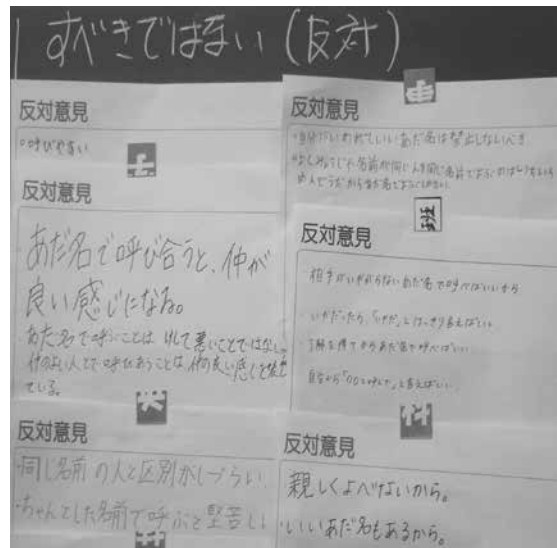 すべきではない(反対)
反対意見
・呼びやすい
反対意見
あだ名で呼び合うと、仲が
良い感じになる。
あだ名で呼ぶことは けして悪いことではなし
仲のよい人とで呼びあうことは 仲の良い感じを
ている。
反対意見
・同じ名前の人と区別がしづらい
・ちゃんとした名前で呼ぶと堅苦しい
反対意見
・自分がいわれていいあだ名は禁止しないべき
反対意見
・相手がいやがらないあだ名で呼べばいいから
・いやだったら、「いやだ」とはっきり言えばいい
・了解を得てからあだ名で呼べばいい
自分から「〇〇と呼んで」と言えばいい
反対意見
親しくよべないから。
・いいあだ名もあるから。